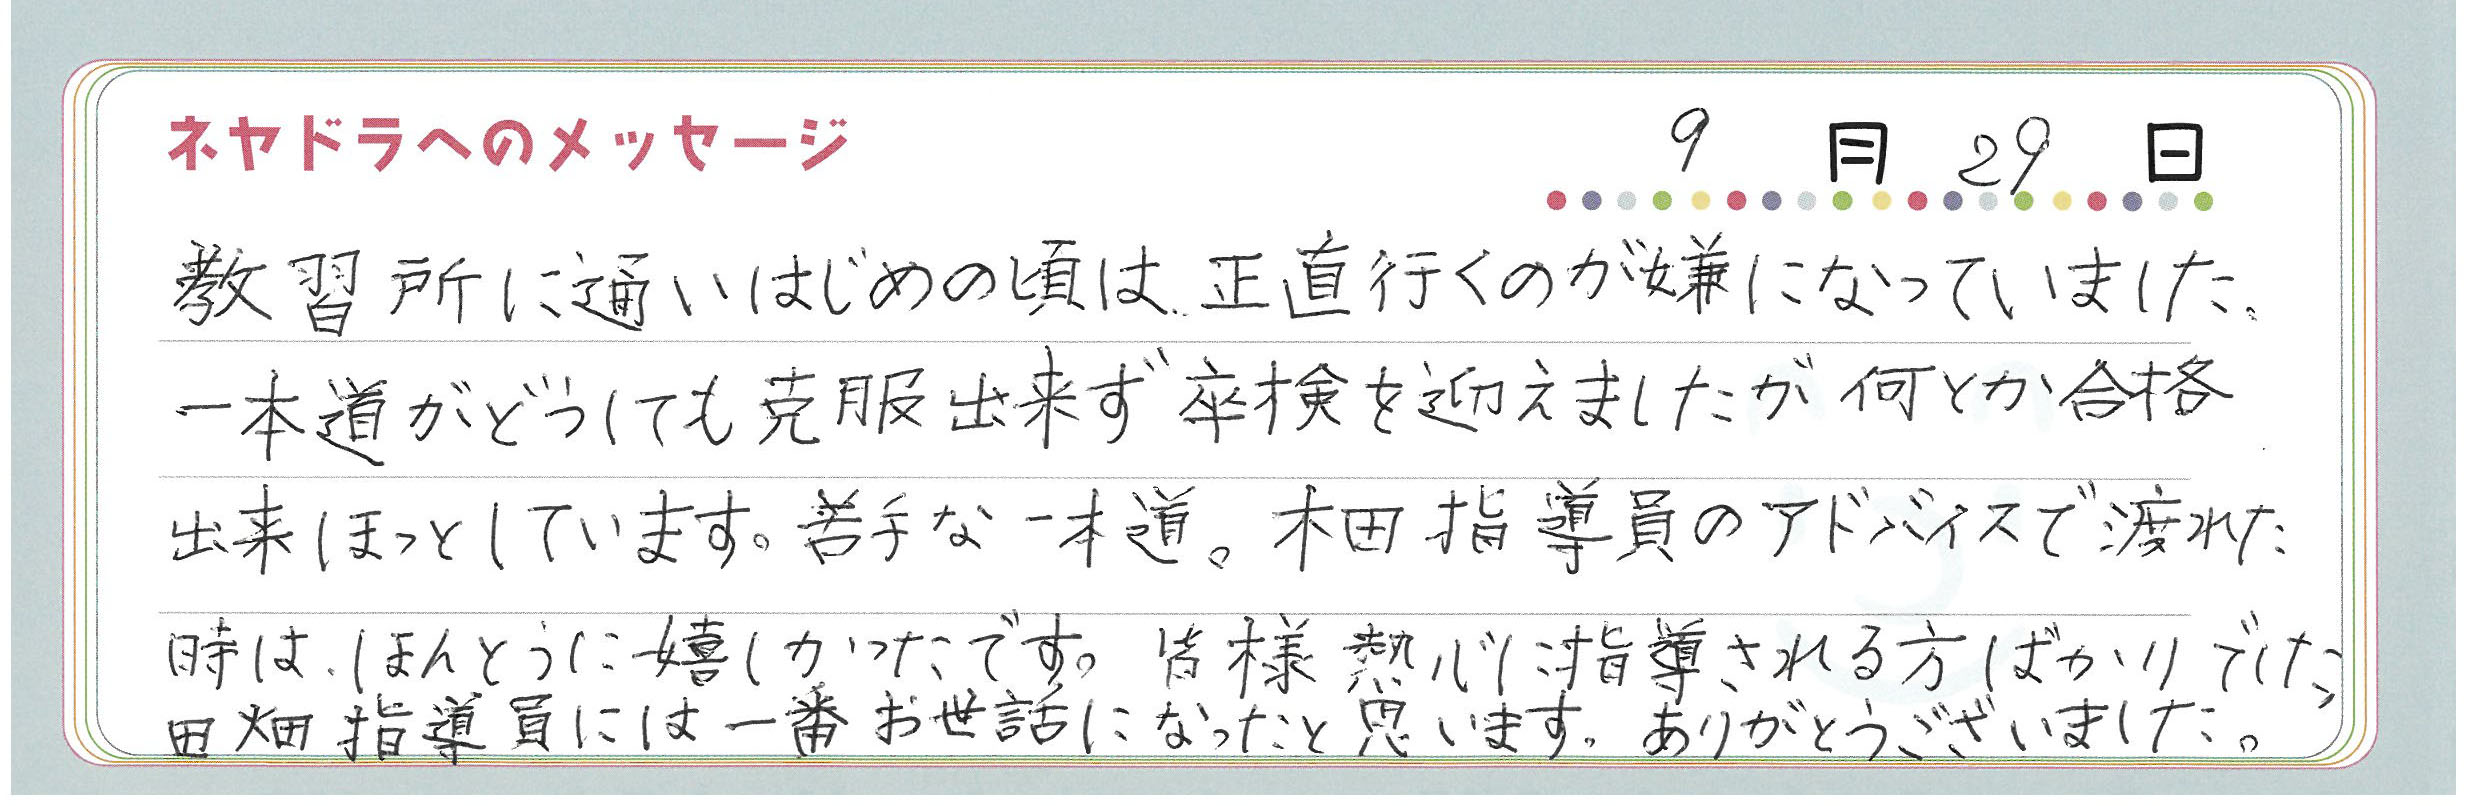 ネヤドラへのメッセージ
9月29日
教習所に通いはじめの頃は、正直行くのが嫌になっていました。
一本道がどうしても克服出来ず卒検を迎えましたが何とか合格
出来ほっとしています。苦手な一本道。木田指導員のアドバイスで渡れた
時は、ほんとうに嬉しかったです。皆様熱心に指導される方ばかりでした。
田畑指導員には一番お世話になったと思います。ありがとうございました。